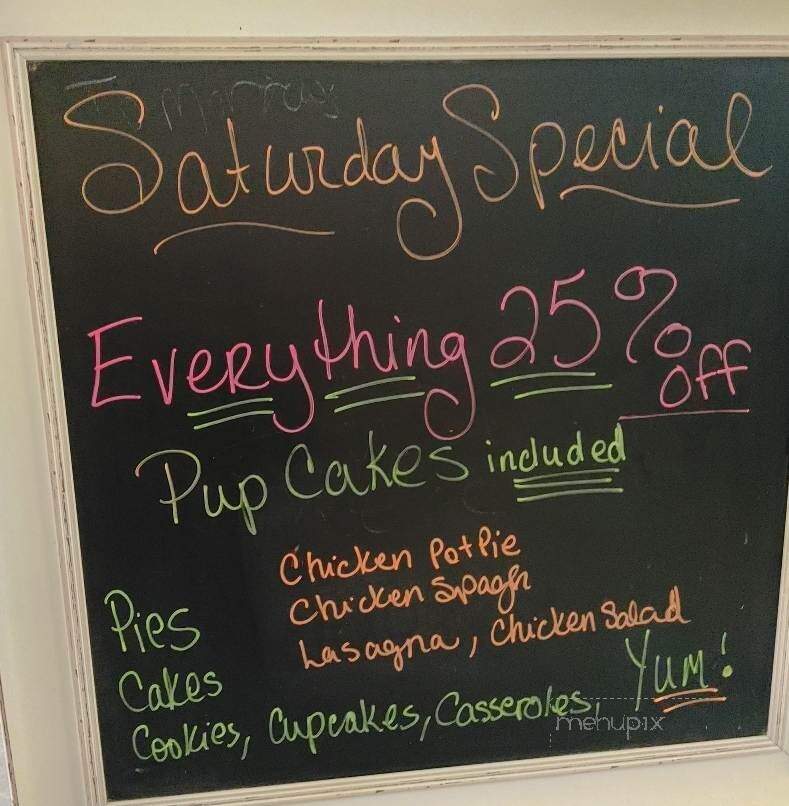 Saturday Special
Everything 25% off
Pup Cakes included
Chicken Pot Pie
Chicken Spagh
Lasagna, Chicken Salad
Pies
Cakes
Cookies, Cupcakes, Casseroles, Yum!
mehupix